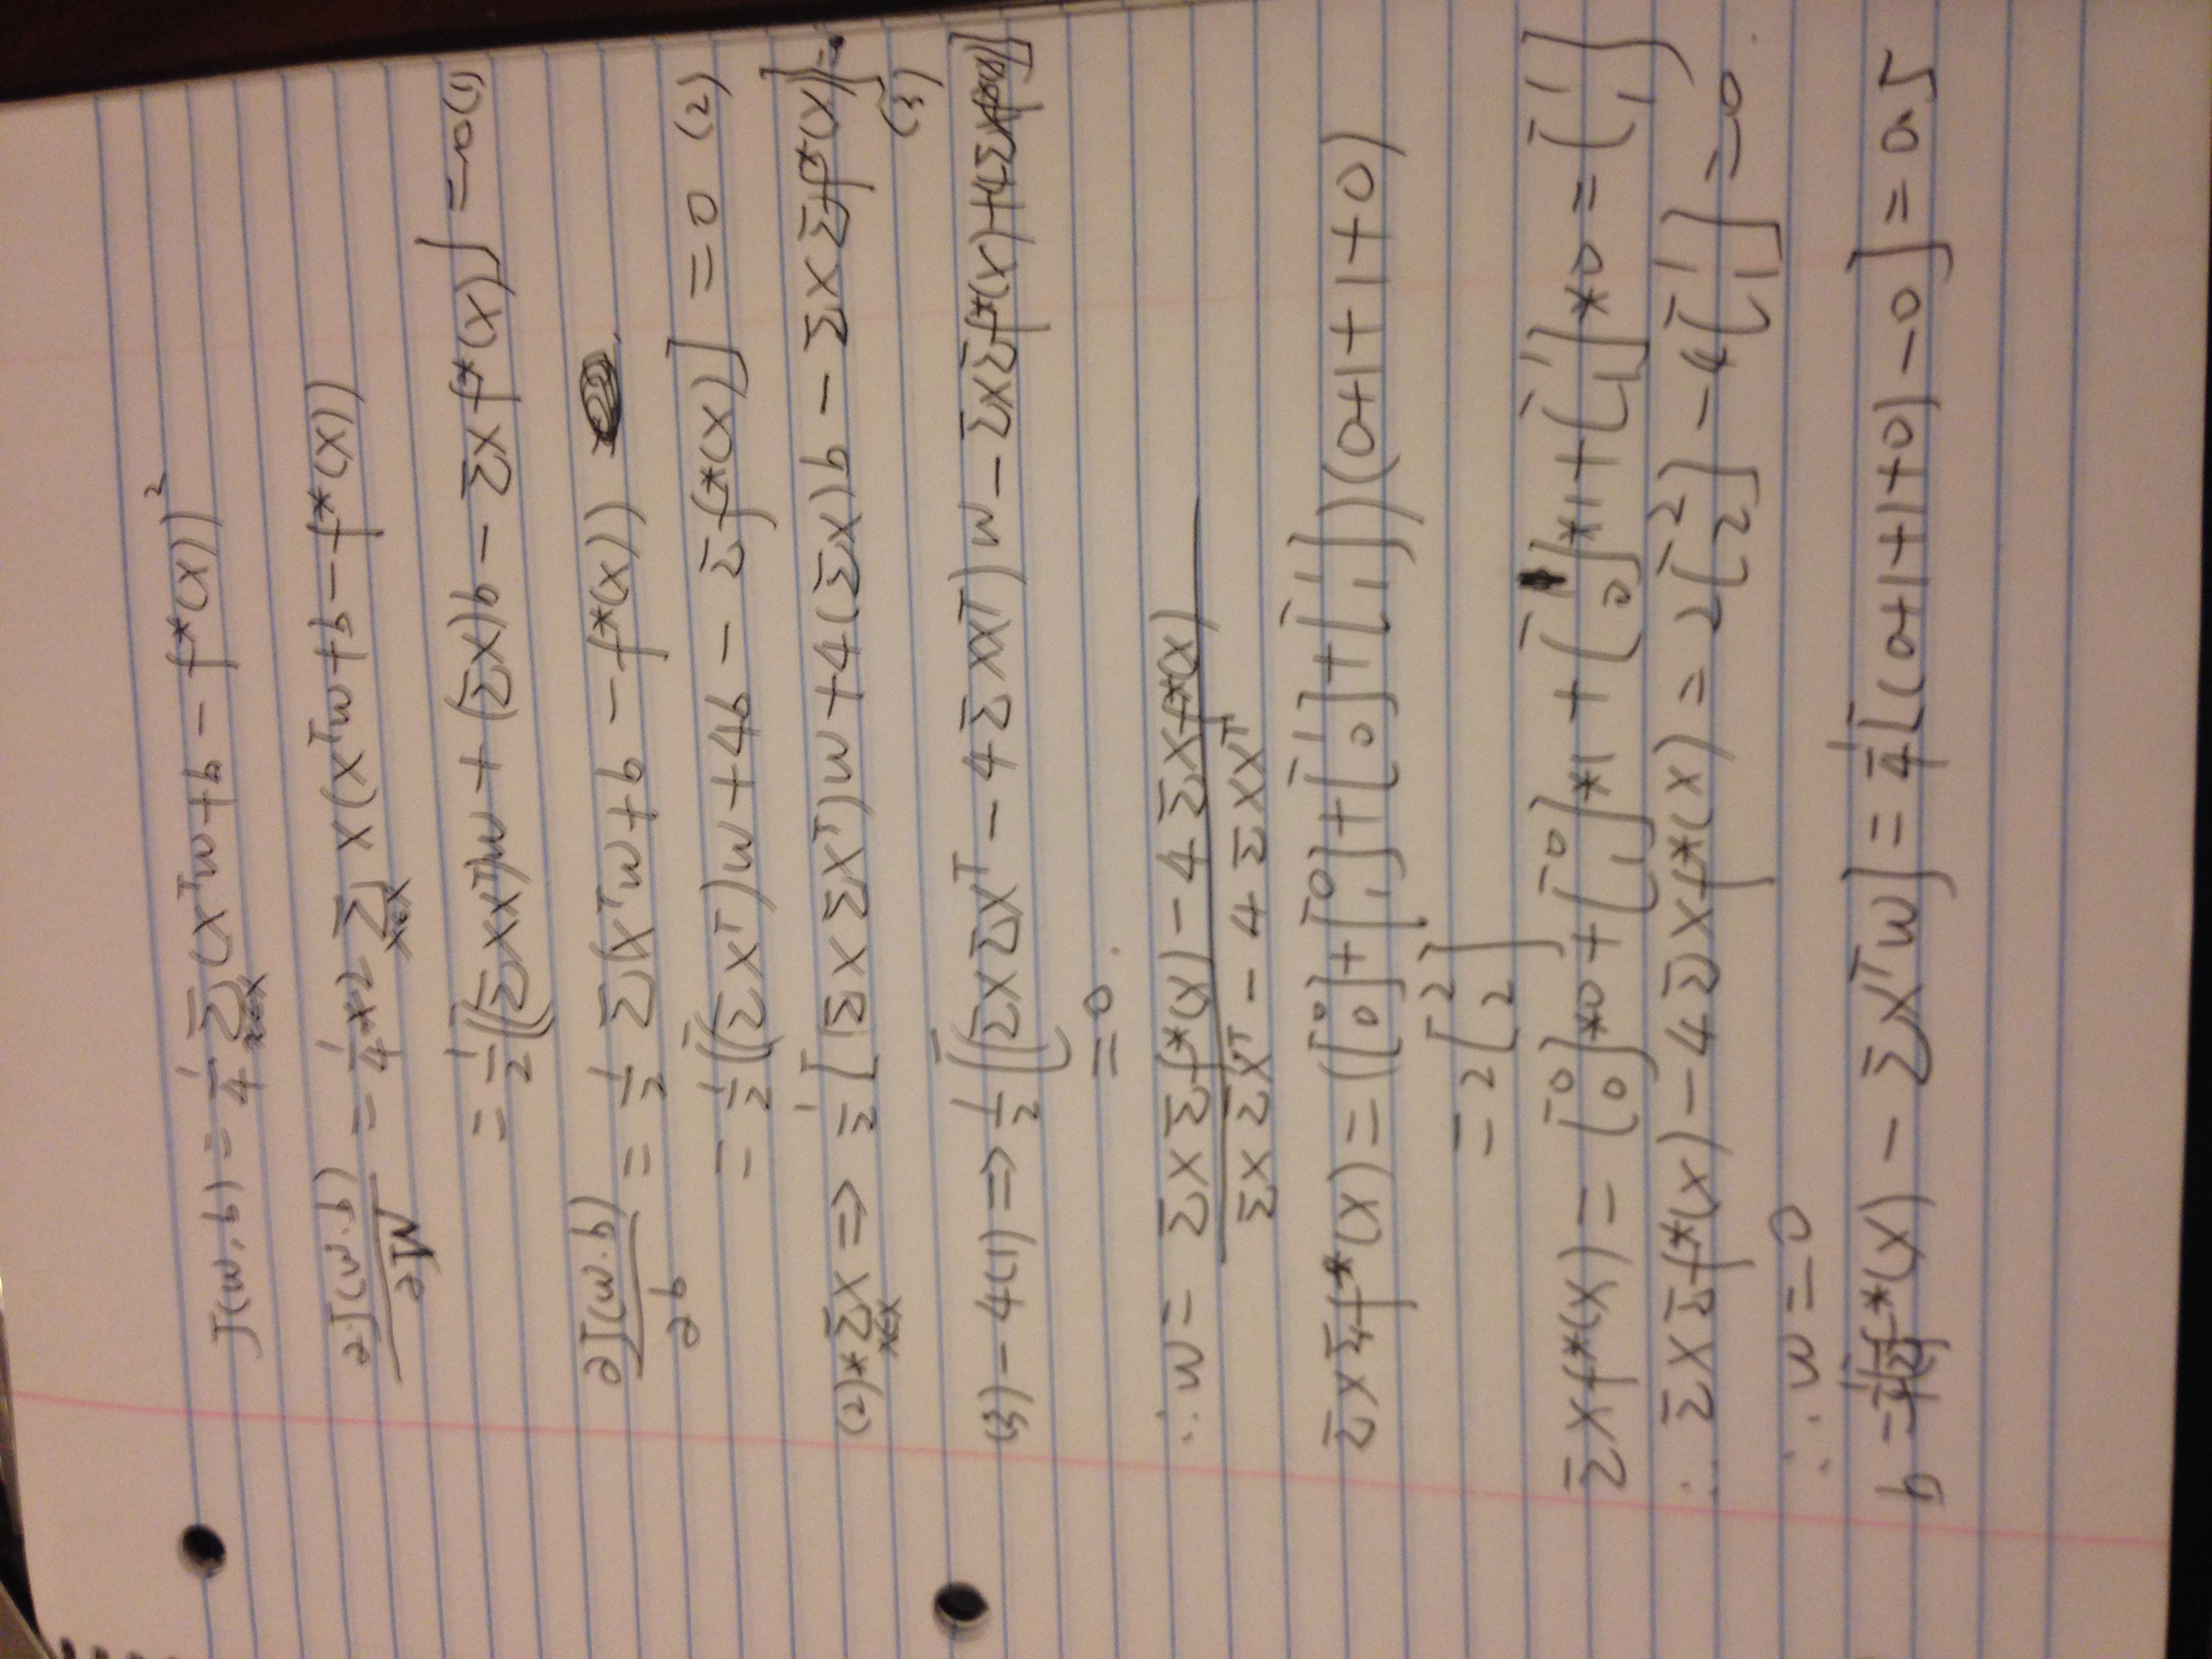 J(w,b) = 1/4 Σ_{x∈X} (x^T w + b − f*(x))^2
∂J(w,b)/∂w = 1/4 × 2 Σ_{x∈X} x(x^T w + b − f*(x))
= 1/2 [(Σxx^T)w + (Σx)b − Σx f*(x)] = 0 (1)
∂J(w,b)/∂b = 1/2 Σ(x^T w + b − f*(x))
= 1/2 [(Σx^T)w + 4b − Σf*(x)] = 0 (2)
(2)*Σ_{x∈X} x ⇒ 1/2 [(Σx Σx^T)w + 4(Σx)b − Σx Σf*(x)] = 0
(3)
(3) − 4(1) ⇒ 1/2 [(Σx Σx^T − 4Σxx^T)w − Σx Σf*(x) + 4Σx f*(x)]
= 0.
∴ w = (Σx Σf*(x) − 4 Σx f*(x)) / (Σx Σx^T − 4 Σxx^T)
Σx Σf*(x) = ([0 0] + [0 1] + [1 0] + [1 1])(0+1+1+0)
= 2[2 2]
Σx f*(x) = [0 0]*0 + [0 1]*1 + [1 0]*1 + [1 1]*0 = [1 1]
∴ Σx Σf*(x) − 4Σx f*(x) = 2[2 2] − 4[1 1] = 0.
∴ w = 0
b = 1/4 [Σf*(x) − Σx^T w] = 1/4 [(0+1+1+0) − 0] = 0.5